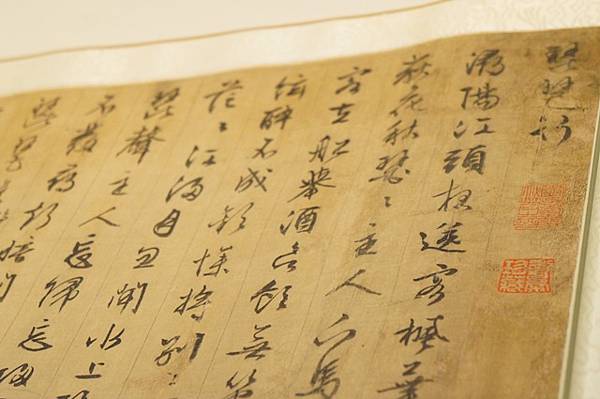 琵琶行
潯陽江頭夜送客楓葉
荻花秋瑟〻主人下馬
客在船舉酒欲飲無管
絃醉不成歡慘將別〻
茫〻江浸月忽聞水上
琵聲主人忘歸
不發尋